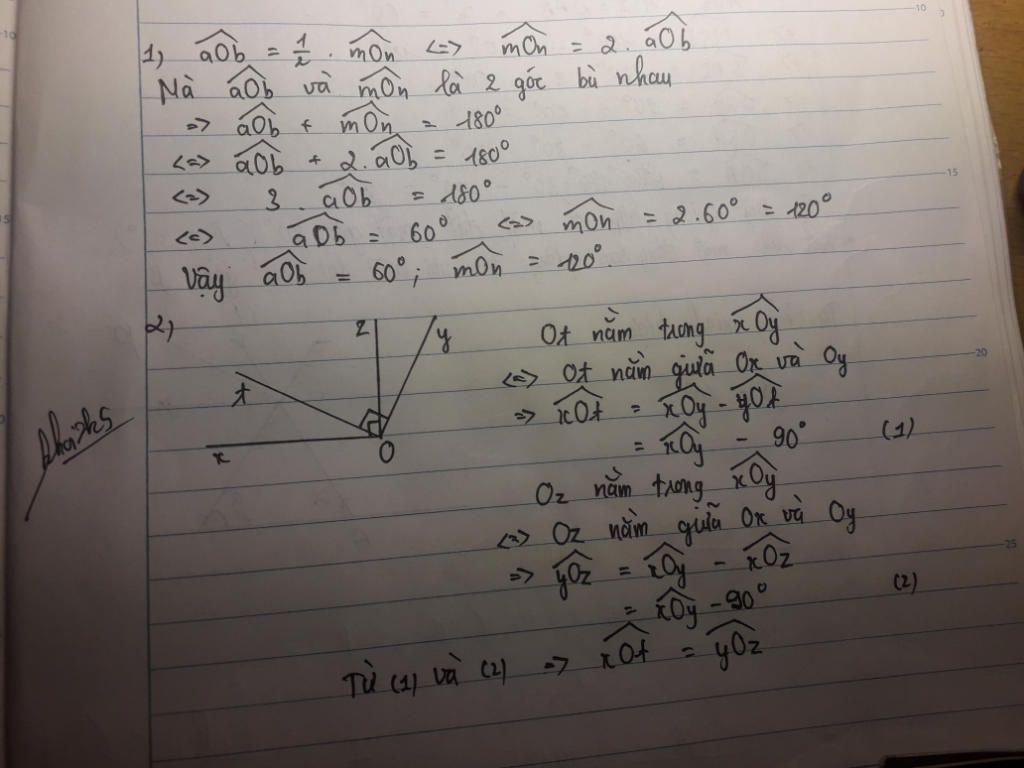 1) aOb = 1/2 . mOn <=> mOn = 2. aOb
Mà aOb và mOn là 2 góc bù nhau
=> aOb + mOn = 180°
<=> aOb + 2. aOb = 180°
<=> 3 . aOb = 180°
<=> aOb = 60° <=> mOn = 2.60° = 120°
Vậy aOb = 60°; mOn = 120°.
2)
z
y
t
x
O
Ot nằm trong xOy
<=> Ot nằm giữa Ox và Oy
=> xOt = xOy - yOt
= xOy - 90° (1)
Oz nằm trong xOy
<=> Oz nằm giữa Ox và Oy
=> yOz = xOy - xOz
= xOy - 90° (2)
Từ (1) và (2) => xOt = yOz
10
15
20
25